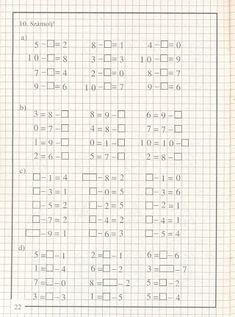 10. Számolj!
a)
5 - □ = 2 8 - □ = 1 4 - □ = 0
10 - □ = 8 3 - □ = 3 10 - □ = 9
7 - □ = 4 2 - □ = 0 8 - □ = 7
9 - □ = 6 10 - □ = 6 9 - □ = 7
b)
3 = 8 - □ 8 = 9 - □ 6 = 9 - □
0 = 7 - □ 4 = 8 - □ 7 = 7 - □
1 = 9 - □ 0 = 1 - □ 10 = 10 - □
2 = 6 - □ 5 = 7 - □ 2 = 8 - □
c)
□ - 1 = 4 □ - 8 = 2 □ - 1 = 0
□ - 3 = 1 □ - 0 = 5 □ - 3 = 6
□ - 2 = 5 □ - 5 = 2 □ - 2 = 1
□ - 7 = 2 □ - 4 = 2 □ - 4 = 1
□ - 9 = 1 □ - 6 = 3 □ - 6 = 3
d)
5 = □ - 1 2 = □ - 1 6 = □ - 6
1 = □ - 4 6 = □ - 2 3 = □ - 7
7 = □ - 0 8 = □ - 2 5 = □ - 2
3 = □ - 3 1 = □ - 5 5 = □ - 4
22